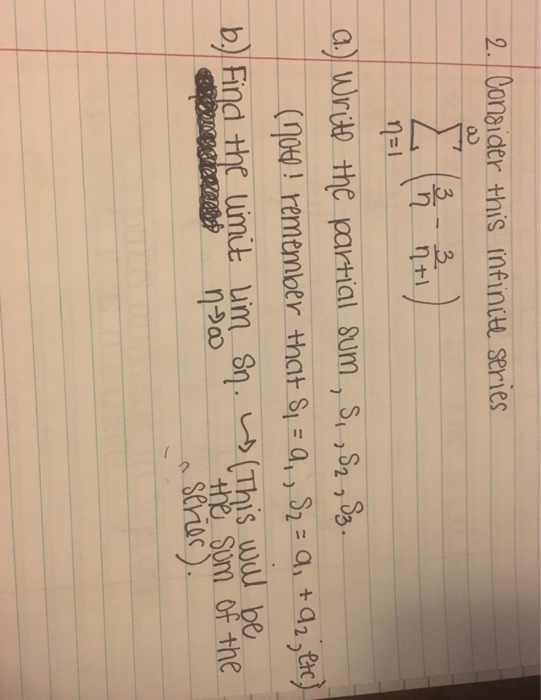 2. Consider this infinite series
∞
∑ (3/n - 3/n+1)
n=1
a.) Write the partial sum, S₁, S₂, S₃.
(note! remember that S₁ = a₁, S₂ = a₁ + a₂, etc)
b.) Find the limit lim Sn. ↪ (This will be
n→∞ the sum of the
series).